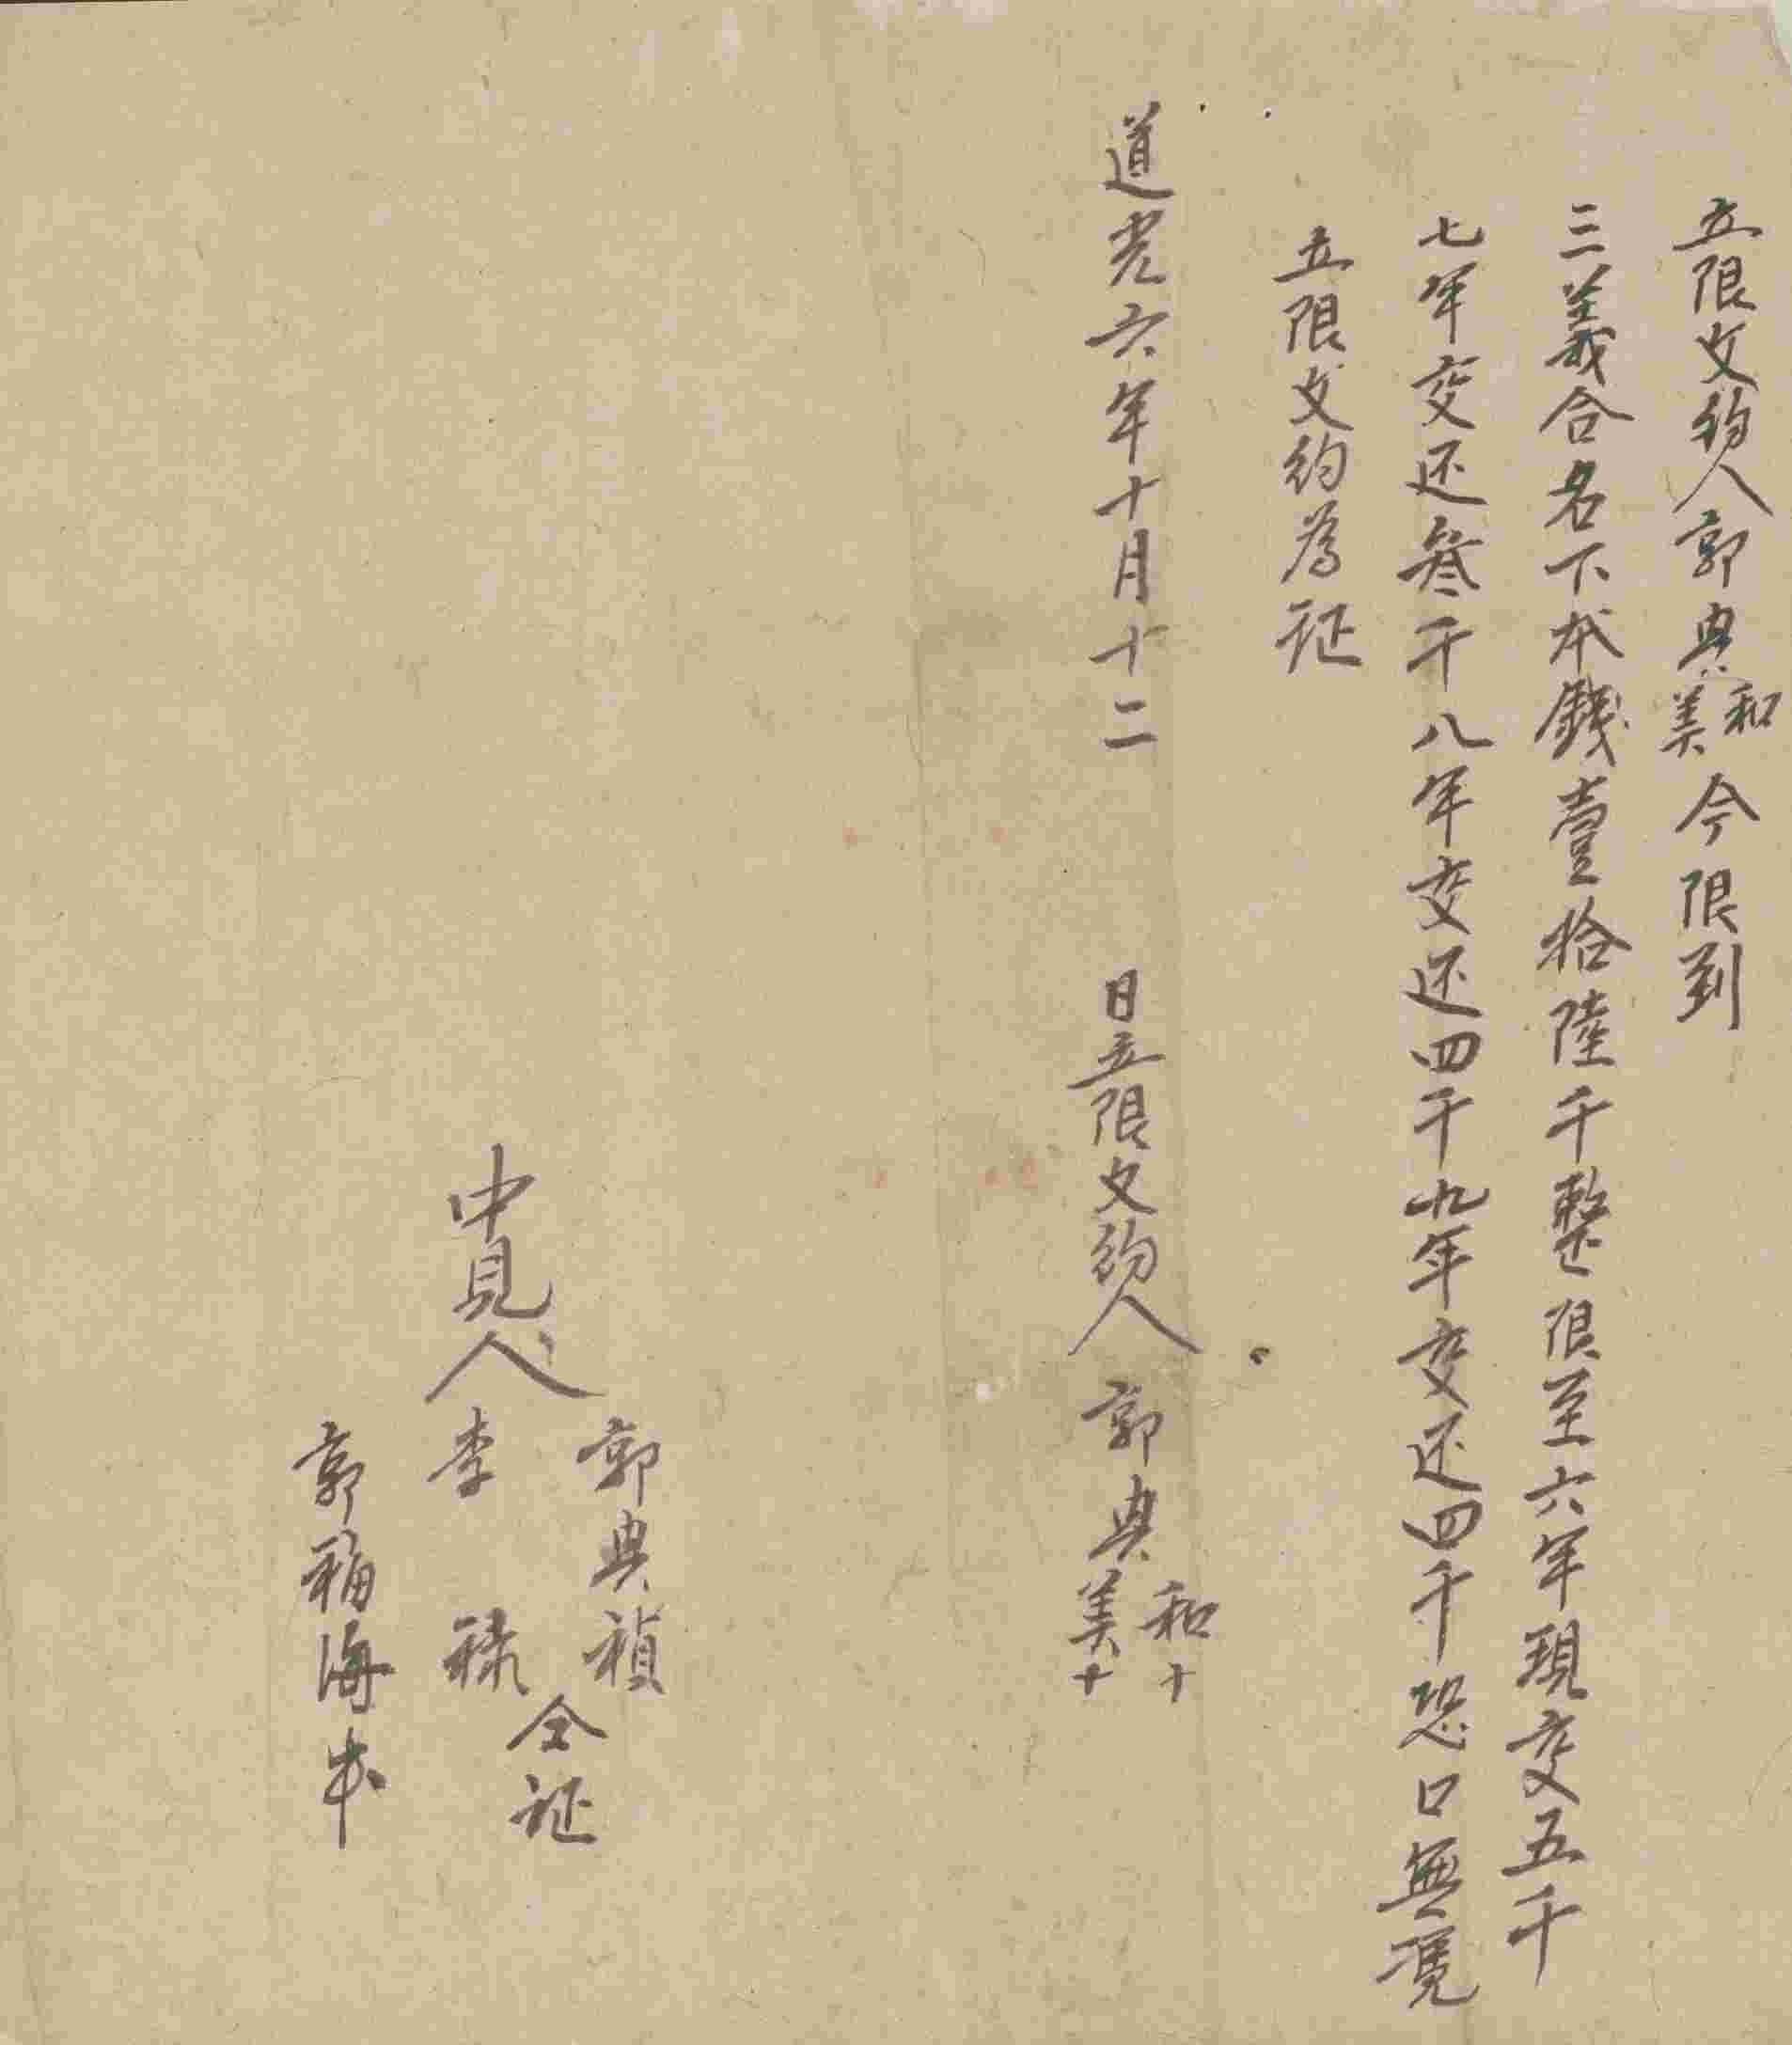 立限文約人郭典和美今限到
三義合名下本錢壹拾陸千整限至六年現交五千
七年交还叁千八年交还四千九年交还四千恐口無凭
立限文約為証
道光六年十月十二日立限文約人郭典和十美十
郭典禎
中見人李禄仝証
郭福海